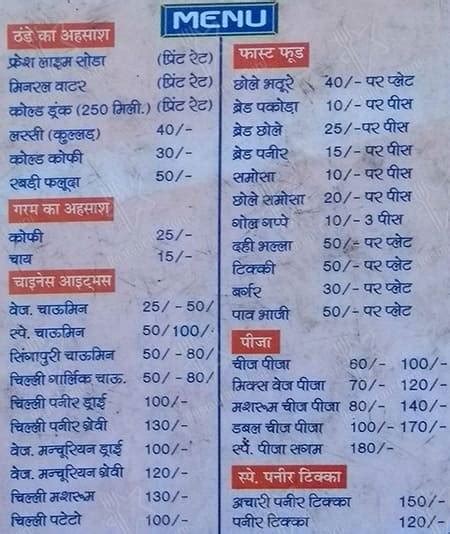 MENU
ठंडे का अहसास
फ्रेश लाइम सोडा (प्रिंट रेट)
मिनरल वाटर (प्रिंट रेट)
कोल्ड ड्रंक (250 मिली.) (प्रिंट रेट)
लस्सी (कुल्लड़) 40/-
कोल्ड कोफी 30/-
रबड़ी फलूदा 50/-
गरम का अहसाश
कोफी 25/-
चाय 15/-
चाइनेस आइट्मस
वेज. चाऊमिन 25/-50/
स्पे. चाऊमिन 50/100/
सिंगापुरी चाऊमिन 50/-80/
चिल्ली गार्लिक चाऊ. 50/-80/
चिल्ली पनीर ड्राई 100/-
चिल्ली पनीर ग्रेवी 130/-
वेज. मन्चूरियन ड्राई 100/-
वेज. मन्चूरियन ग्रेवी 120/-
चिल्ली मशरूम 130/-
चिल्ली पटेटो 100/-
फास्ट फूड
छोले भटूरे 40/-पर प्लेट
ब्रेड पकोडा 10/-पर पीस
ब्रेड छोले 25/-पर पीस
ब्रेड पनीर 15/-पर पीस
समोसा 10/-पर पीस
छोले समोसा 20/-पर पीस
गोल गप्पे 10/-3 पीस
दही भल्ला 50/-पर प्लेट
टिक्की 50/-पर प्लेट
बर्गर 30/-पर प्लेट
पाव भाजी 50/-पर प्लेट
पीजा
चीज पीजा 60/- 100/-
मिक्स वेज पीजा 70/- 120/-
मशरूम चीज पीजा 80/- 140/-
डबल चीज पीजा 100/-170/-
स्पै. पीजा सगम 180/-
स्पे. पनीर टिक्का
अचारी पनीर टिक्का 150/-
पनीर टिक्का 120/-